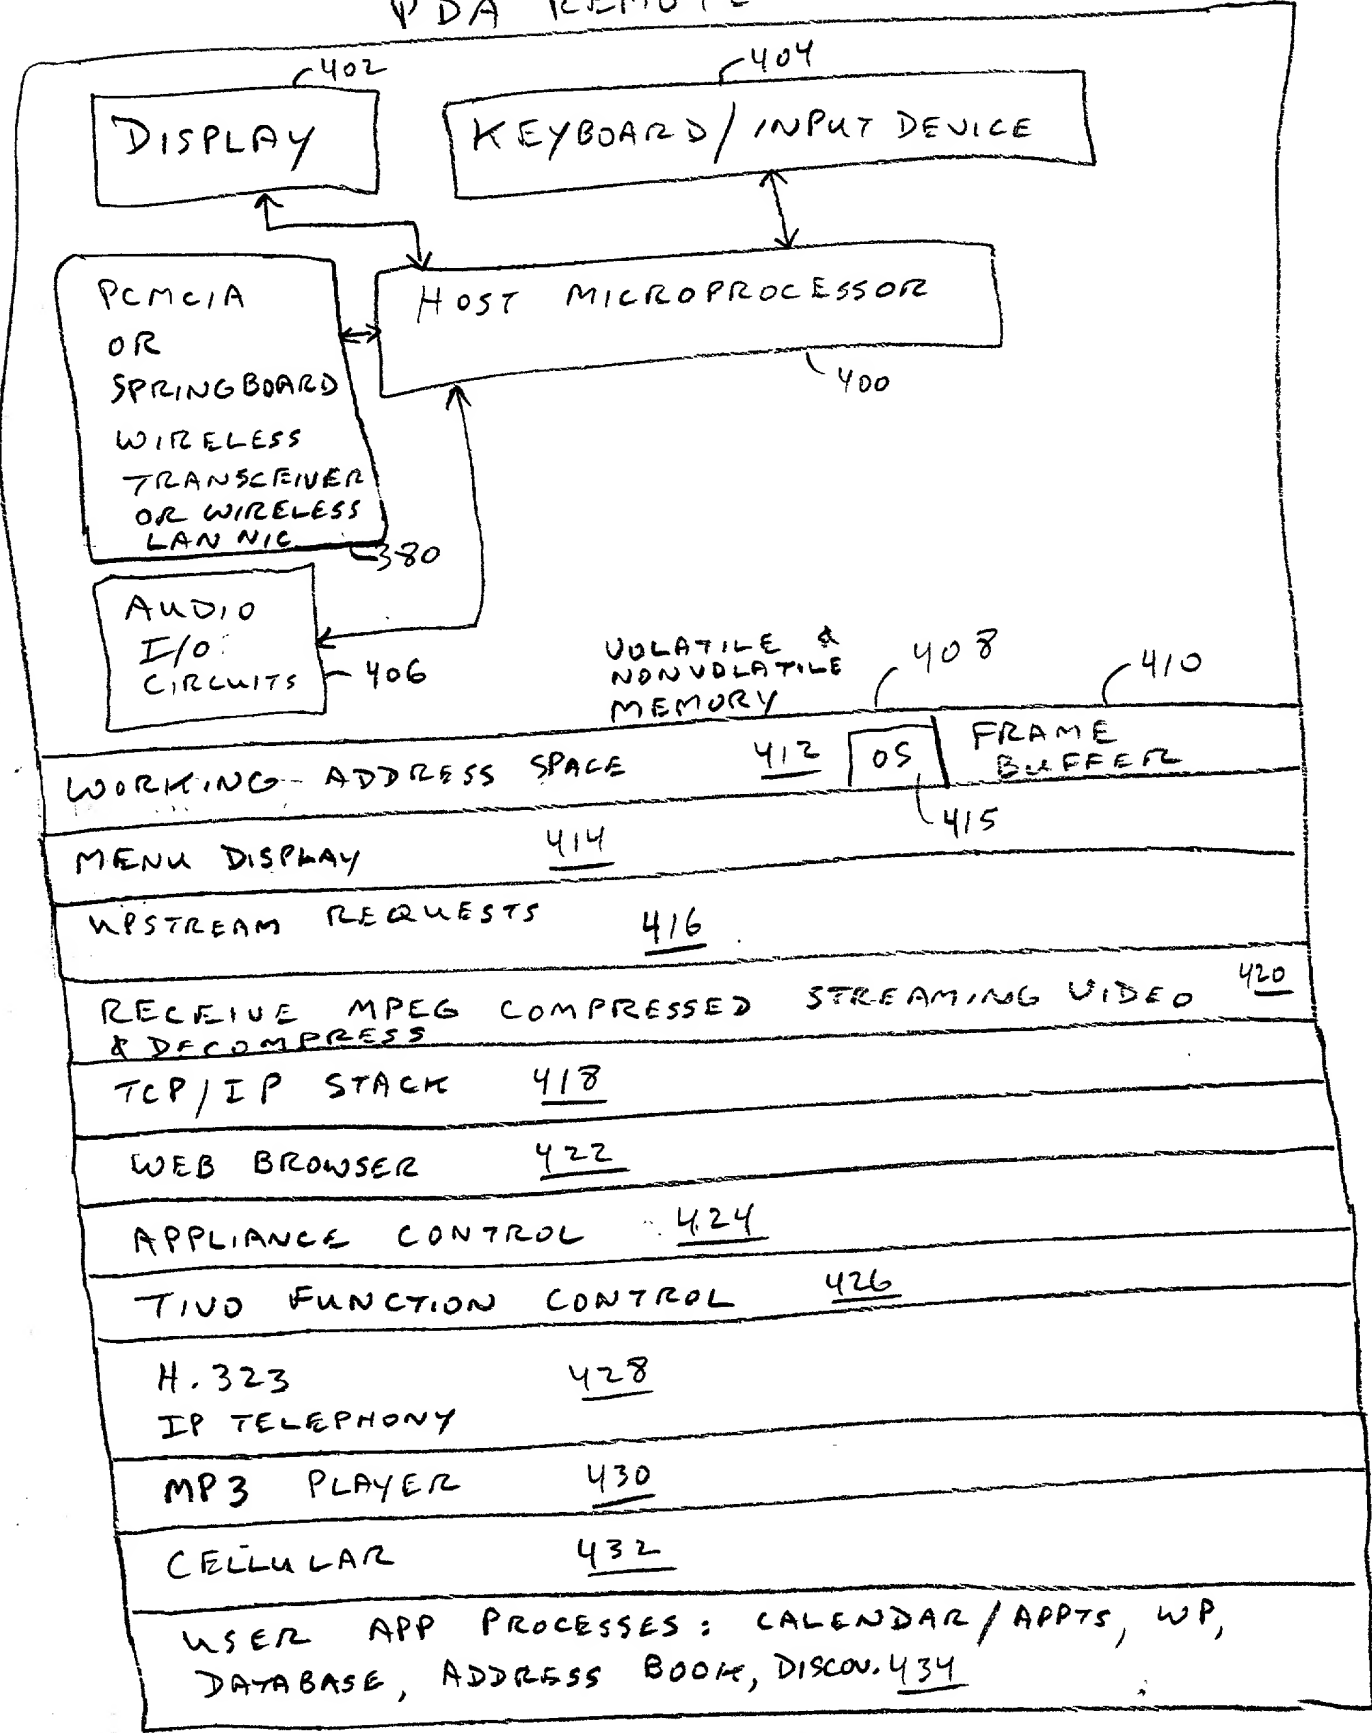 PDA REMOTE
402
404
DISPLAY
KEYBOARD/INPUT DEVICE
PCMCIA
OR
SPRINGBOARD
WIRELESS
TRANSCEIVER
OR WIRELESS
LAN NIC
380
HOST MICROPROCESSOR
400
AUDIO
I/O
CIRCUITS
406
VOLATILE &
NONVOLATILE
MEMORY
408
410
WORKING ADDRESS SPACE 412
OS
FRAME
BUFFER
415
MENU DISPLAY 414
UPSTREAM REQUESTS 416
RECEIVE MPEG COMPRESSED STREAMING VIDEO 420
& DECOMPRESS
TCP/IP STACK 418
WEB BROWSER 422
APPLIANCE CONTROL 424
TIVO FUNCTION CONTROL 426
H.323 428
IP TELEPHONY
MP3 PLAYER 430
CELLULAR 432
USER APP PROCESSES: CALENDAR/APPTS, WP,
DATABASE, ADDRESS BOOK, DISCOV. 434